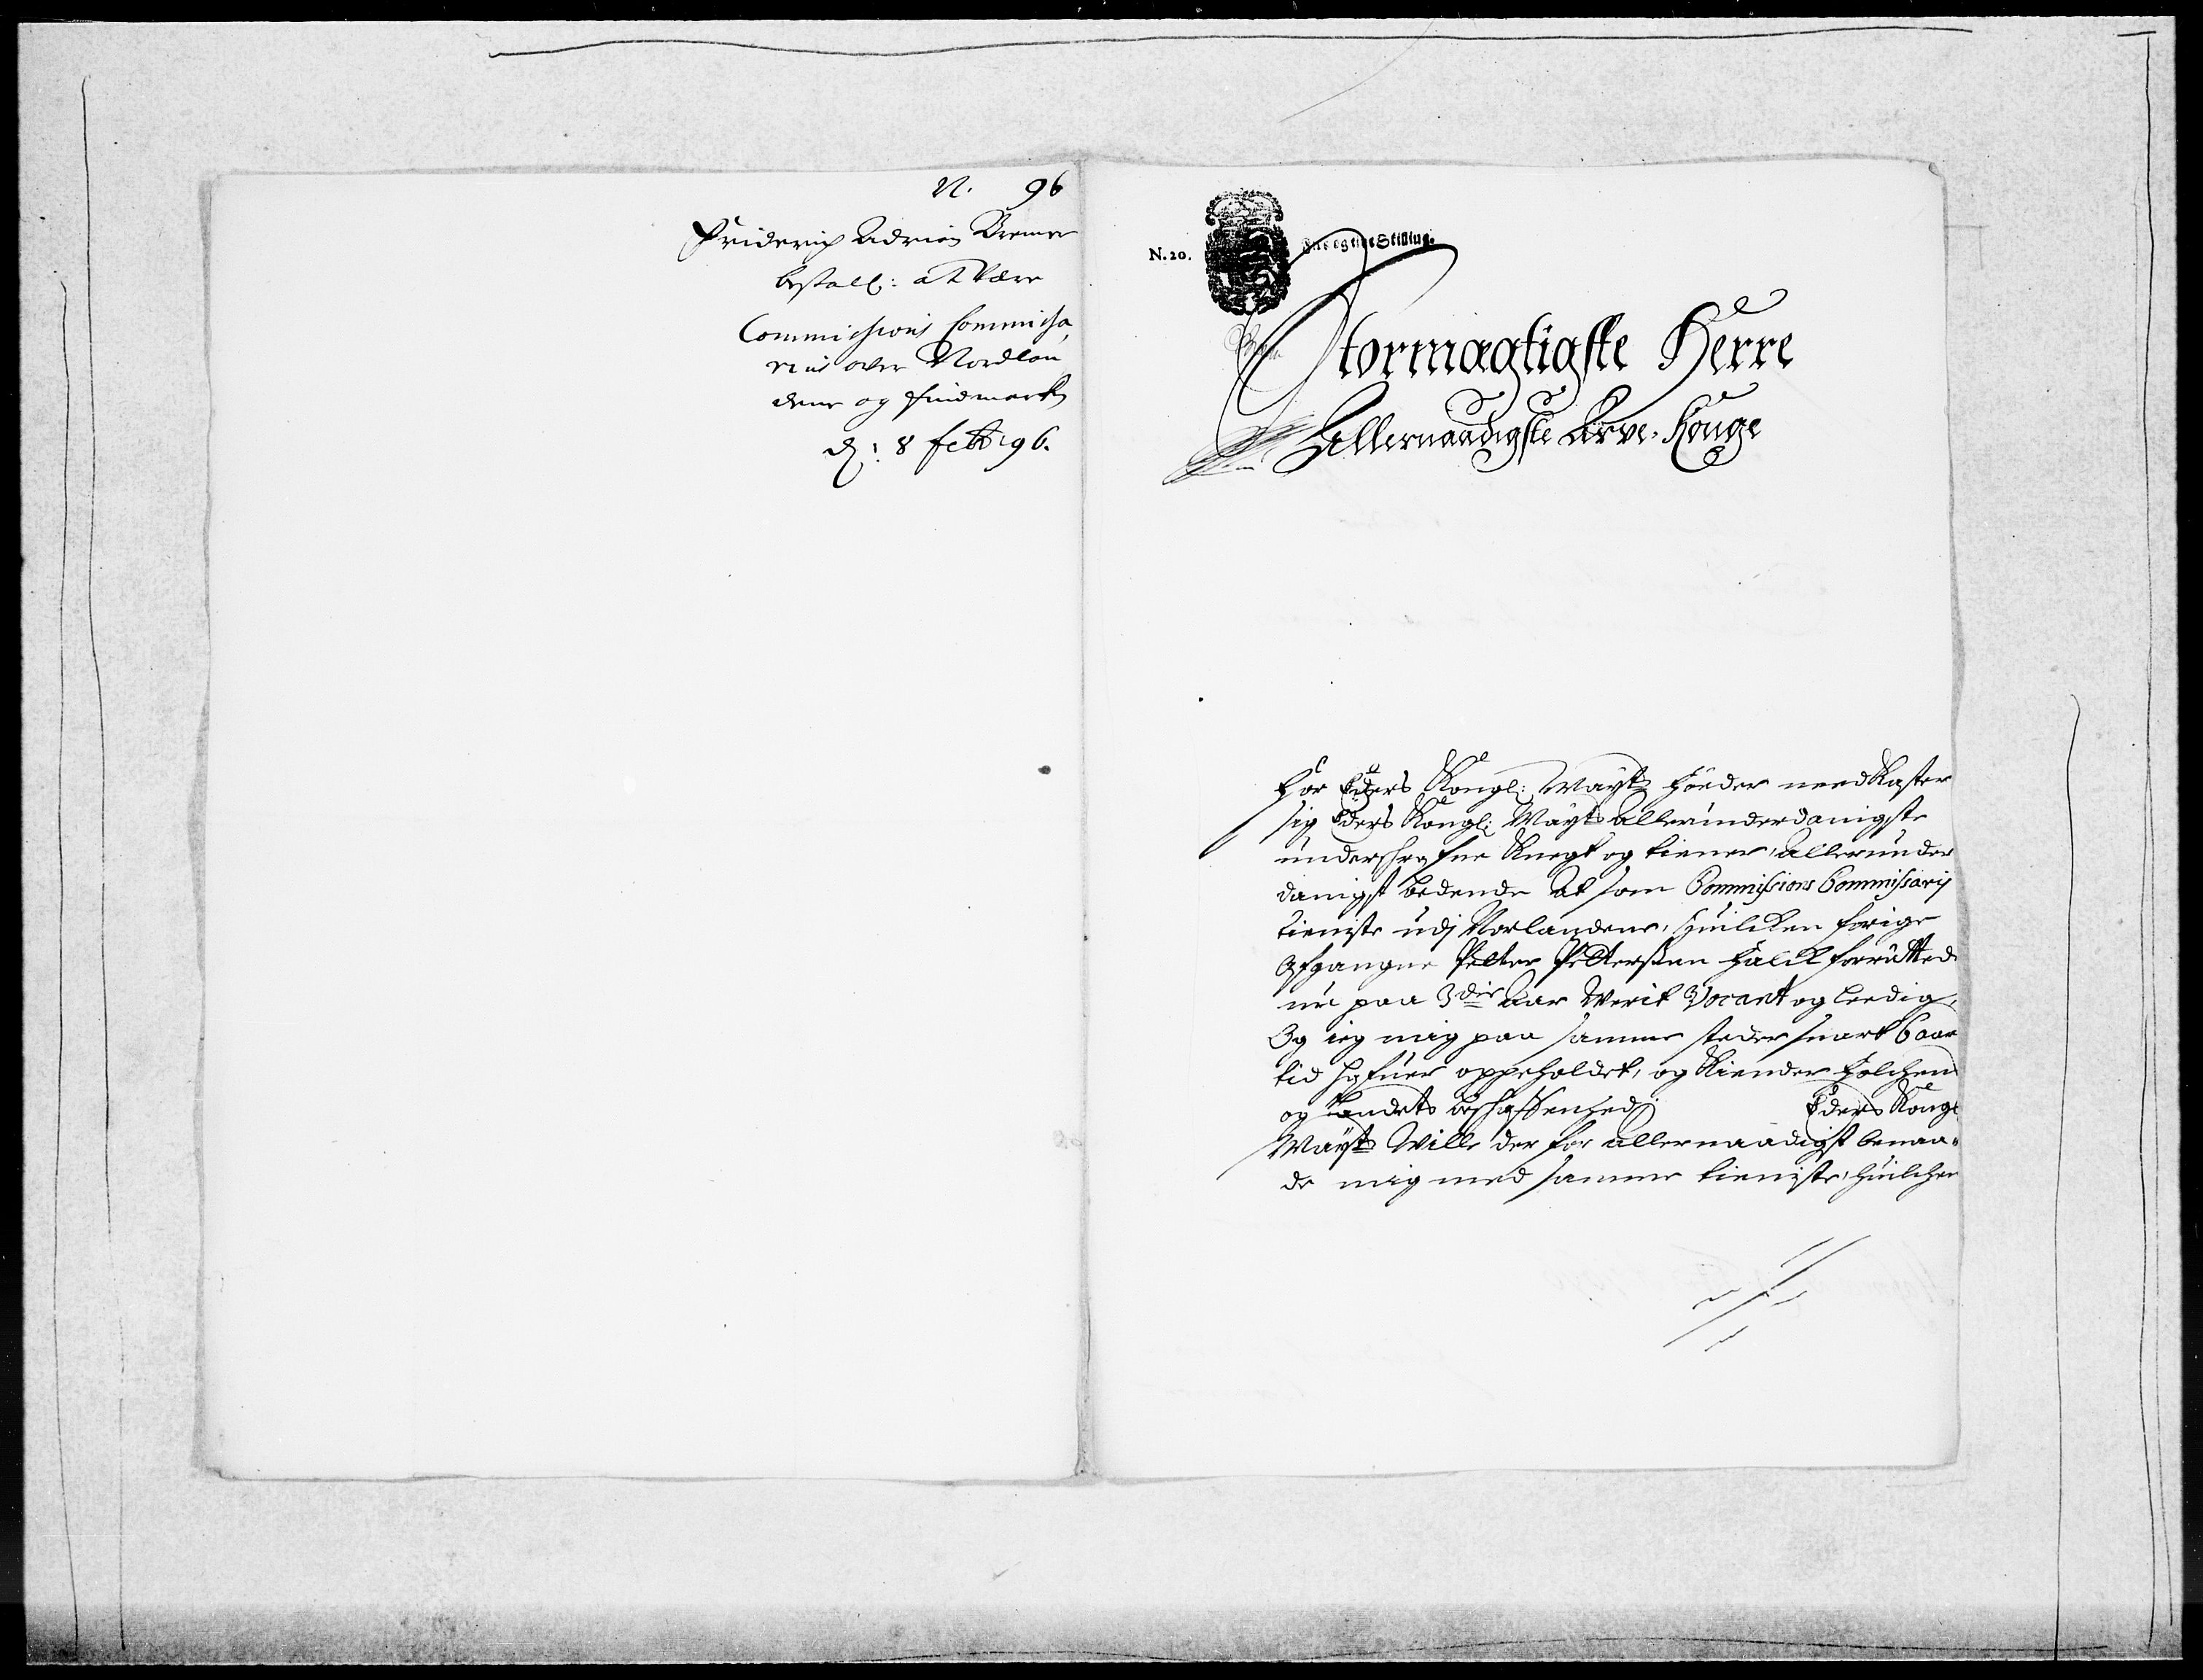 N. 96
Friderich Adrian Bremer
bestall: at være
Commissions Commissa,
rius over Nordlan
dene og Findmarken
d: 8 Febr 96.
N. 20.
Fire og tive Skilling.
Stormagtigste Herre
Allernaadigste Arve-Konge
For Eders Kongl: Mayts Föeder needkaster
sig Eders Kongl: Mayts allerunderdanigste
underskrefne Knegt og tiener, allerunder
danigst bedende at som Commissions Commissarij
tieniste udj Norlandene, huilcken forige
Afgangne Petter Pettersen Falck forrætted
nu paa 3die aar Werit Vacant og leedig,
Og ieg mig paa samme steder snart 6 aar
tid hafuer oppeholdet, og Kiender Folchene
og Landets beskaffenhed. Eders Kongl
Mayts Wille der for allernaadigst benaa-
de mig med samme tieniste, huilchen